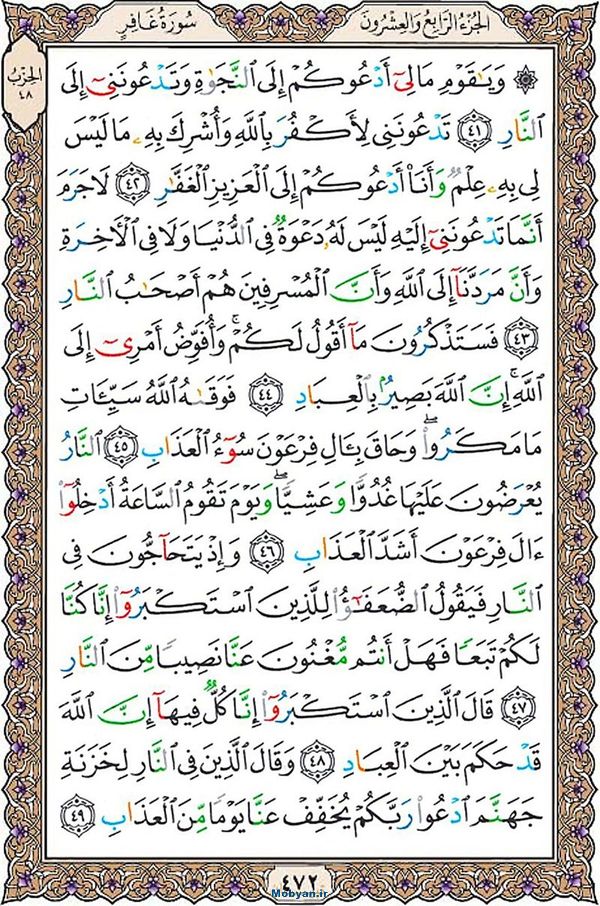 الجُزءُ الرَّابِعُ وَالعِشْرُونَ
سُورَةُ غَافِرٍ
الحِزْبُ
٤٨
۞ وَيَٰقَوْمِ مَا لِىٓ أَدْعُوكُمْ إِلَى ٱلنَّجَوٰةِ وَتَدْعُونَنِىٓ إِلَى
ٱلنَّارِ ٤١ تَدْعُونَنِى لِأَكْفُرَ بِٱللَّهِ وَأُشْرِكَ بِهِۦ مَا لَيْسَ
لِى بِهِۦ عِلْمٌ وَأَنَا۠ أَدْعُوكُمْ إِلَى ٱلْعَزِيزِ ٱلْغَفَّٰرِ ٤٢ لَا جَرَمَ
أَنَّمَا تَدْعُونَنِىٓ إِلَيْهِ لَيْسَ لَهُۥ دَعْوَةٌ فِى ٱلدُّنْيَا وَلَا فِى ٱلْأَخِرَةِ
وَأَنَّ مَرَدَّنَآ إِلَى ٱللَّهِ وَأَنَّ ٱلْمُسْرِفِينَ هُمْ أَصْحَٰبُ ٱلنَّارِ
٤٣ فَسَتَذْكُرُونَ مَآ أَقُولُ لَكُمْ ۚ وَأُفَوِّضُ أَمْرِىٓ إِلَى
ٱللَّهِ ۚ إِنَّ ٱللَّهَ بَصِيرٌۢ بِٱلْعِبَادِ ٤٤ فَوَقَىٰهُ ٱللَّهُ سَيِّـَٔاتِ
مَا مَكَرُوا۟ ۖ وَحَاقَ بِـَٔالِ فِرْعَوْنَ سُوٓءُ ٱلْعَذَابِ ٤٥ ٱلنَّارُ
يُعْرَضُونَ عَلَيْهَا غُدُوًّا وَعَشِيًّا ۖ وَيَوْمَ تَقُومُ ٱلسَّاعَةُ أَدْخِلُوٓا۟
ءَالَ فِرْعَوْنَ أَشَدَّ ٱلْعَذَابِ ٤٦ وَإِذْ يَتَحَآجُّونَ فِى
ٱلنَّارِ فَيَقُولُ ٱلضُّعَفَٰٓؤُا۟ لِلَّذِينَ ٱسْتَكْبَرُوٓا۟ إِنَّا كُنَّا
لَكُمْ تَبَعًا فَهَلْ أَنتُم مُّغْنُونَ عَنَّا نَصِيبًا مِّنَ ٱلنَّارِ
٤٧ قَالَ ٱلَّذِينَ ٱسْتَكْبَرُوٓا۟ إِنَّا كُلٌّ فِيهَآ إِنَّ ٱللَّهَ
قَدْ حَكَمَ بَيْنَ ٱلْعِبَادِ ٤٨ وَقَالَ ٱلَّذِينَ فِى ٱلنَّارِ لِخَزَنَةِ
جَهَنَّمَ ٱدْعُوا۟ رَبَّكُمْ يُخَفِّفْ عَنَّا يَوْمًا مِّنَ ٱلْعَذَابِ ٤٩
٤٧٢
Mobyan.ir